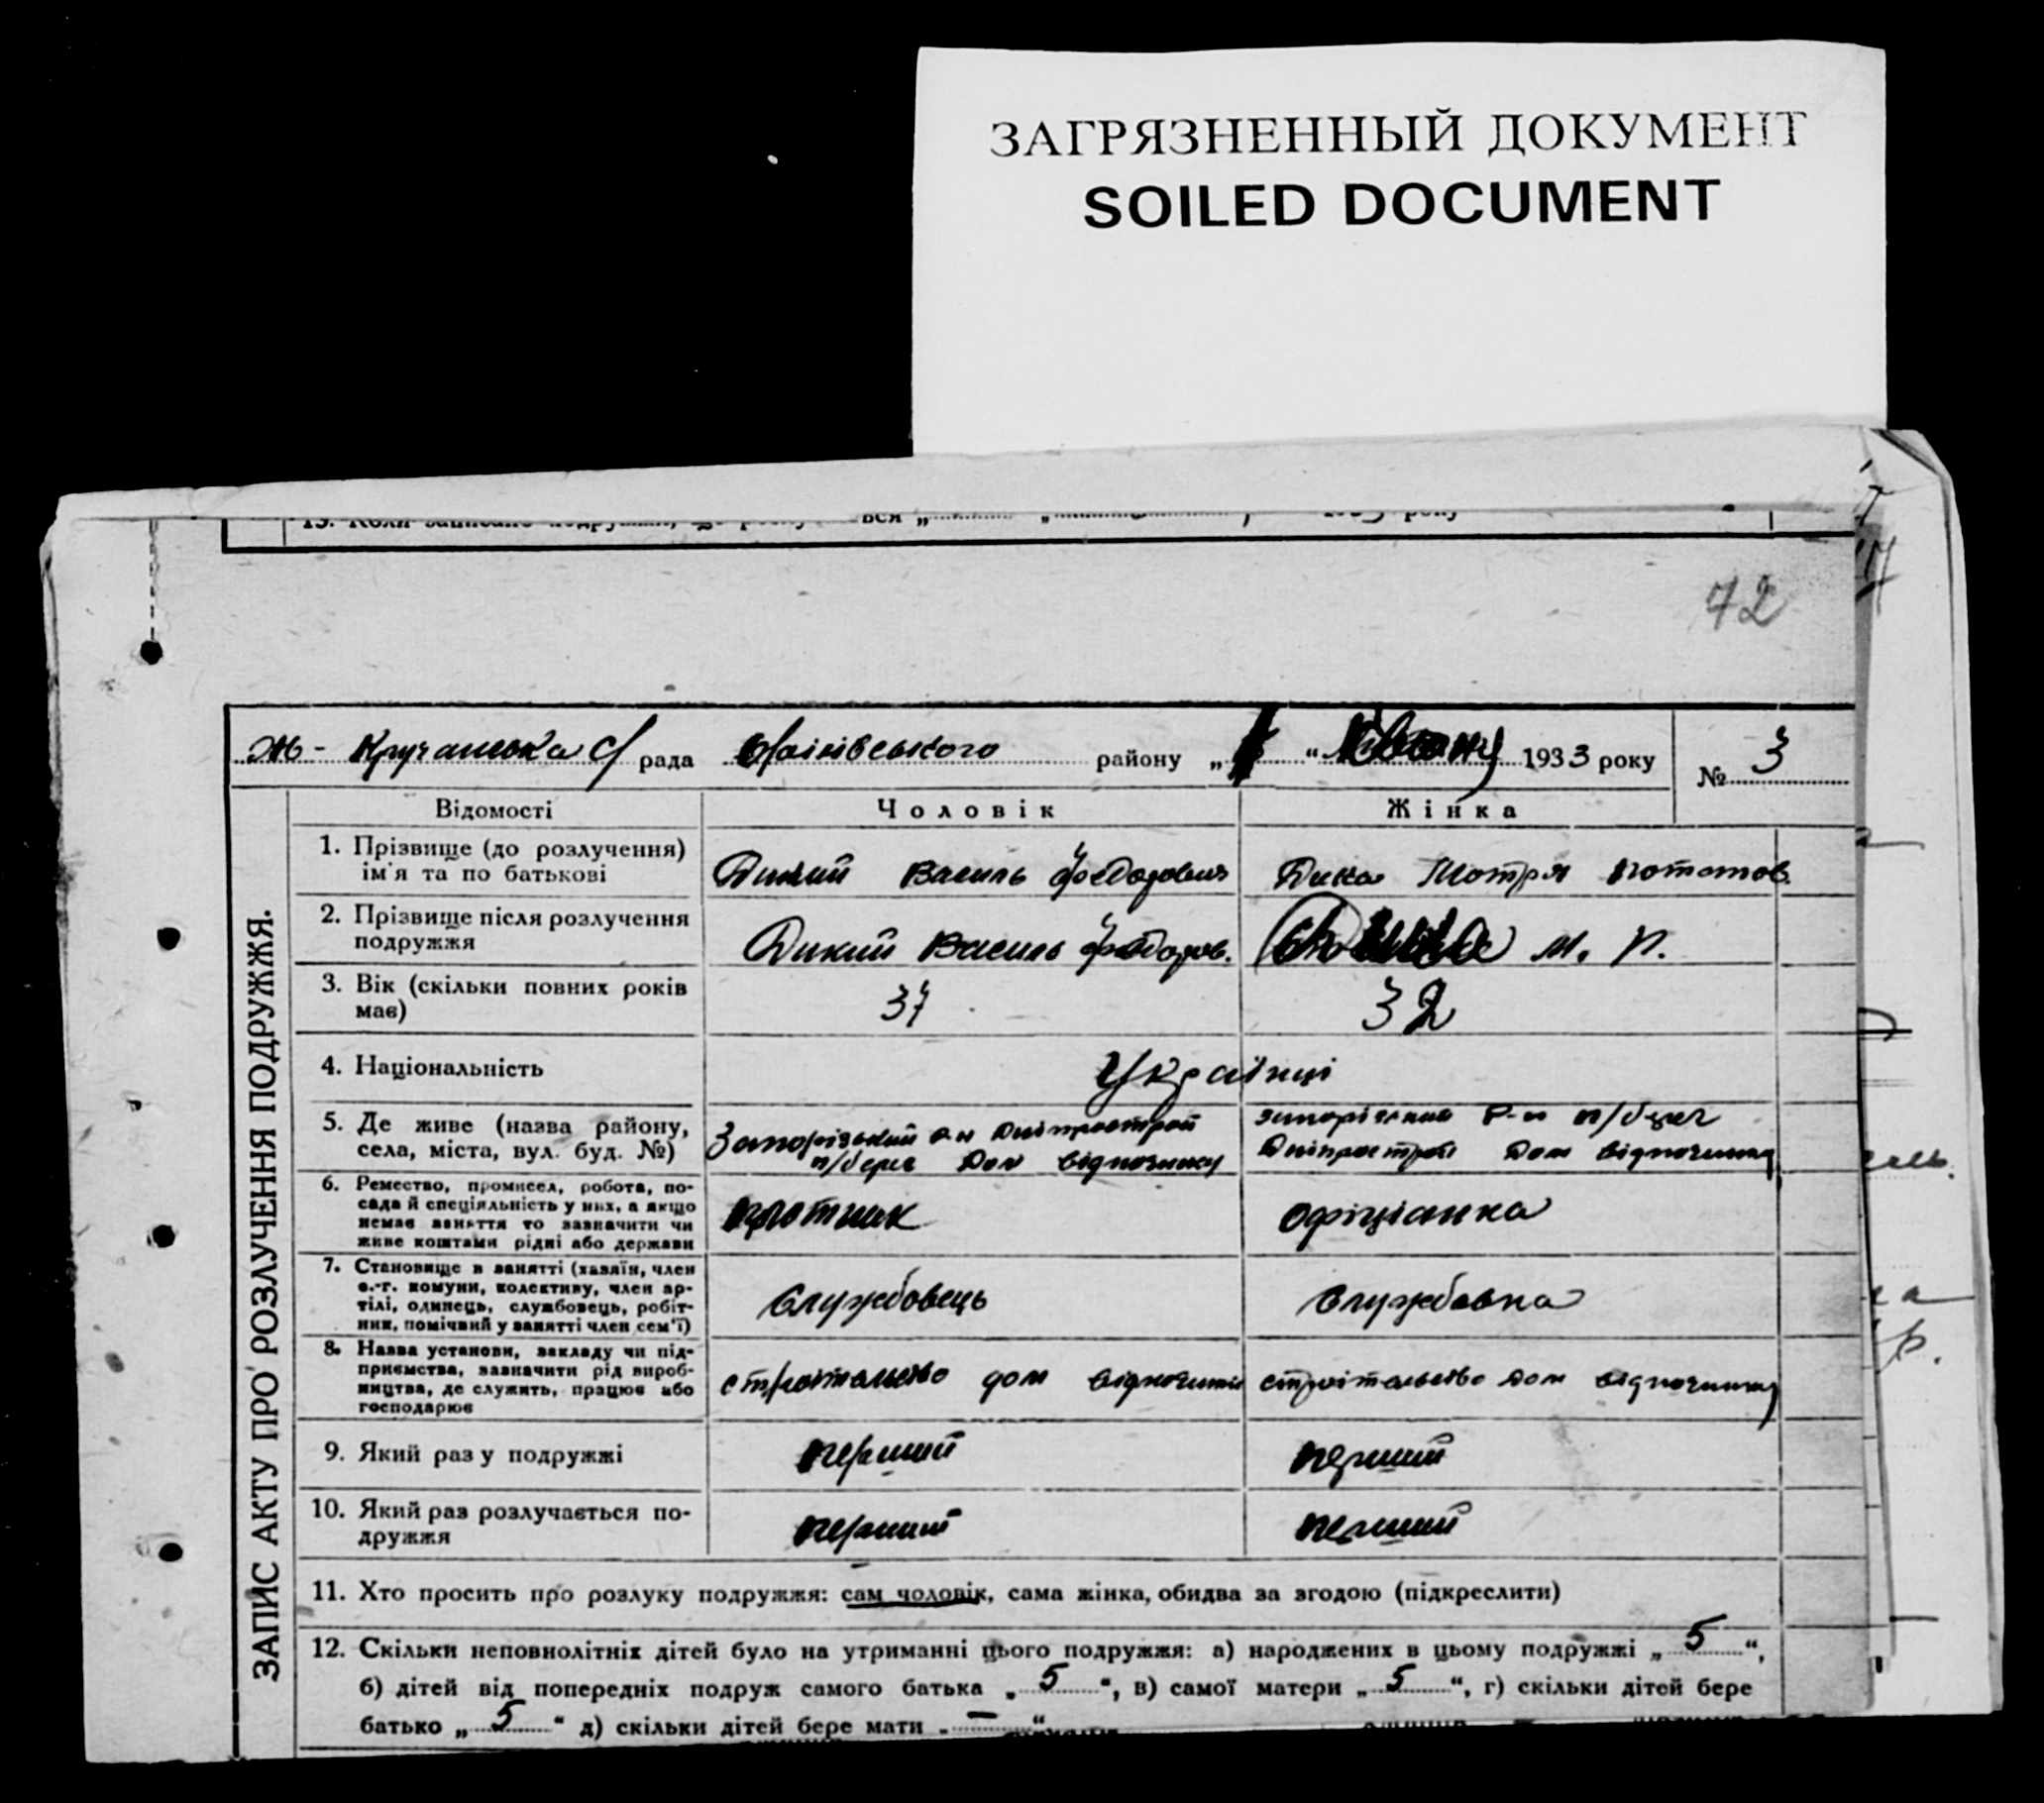 ЗАГРЯЗНЕННЫЙ ДОКУМЕНТ
SOILED DOCUMENT
72
Кручанська с/ рада району „ “ 1933 року № 3
ЗАПИС АКТУ ПРО РОЗЛУЧЕННЯ ПОДРУЖЖЯ.
Відомості Чоловік Жінка
1. Прізвище (до розлучення)
ім'я та по батькові
Дикий Василь Федорович Дика Мотря Потапов.
2. Прізвище після розлучення
подружжя
Дикий Василь Федоров. М. П.
3. Вік (скільки повних років
має)
37 32
4. Національність Українці
5. Де живе (назва району,
села, міста, вул. буд. №)
Запорізький р-н Дніпрострой
п/берег Дом відпочинку
запорізький р-н п/берег
Дніпрострой Дом відпочинку
6. Ремество, промисел, робота, по-
сада й спеціяльність у них, а якщо
немає заняття то зазначити чи
живе коштами рідні або держави
плотник офіціанка
7. Становище в занятті (хазяїн, член
с.-г. комуни, колективу, член ар-
тілі, одинець, службовець, робіт-
ник, помічний у занятті член сем'ї)
Службовець Службовка
8. Назва установи, закладу чи під-
приємства, зазначити рід вироб-
ництва, де служить, працює або
господарює
строітельство дом відпочинку строітельство дом відпочинку
9. Який раз у подружжі перший перший
10. Який раз розлучається по-
дружжя
перший перший
11. Хто просить про розлуку подружжя: сам чоловік, сама жінка, обидва за згодою (підкреслити)
12. Скільки неповнолітніх дітей було на утриманні цього подружжя: а) народжених в цьому подружжі „ 5 “,
б) дітей від попередніх подруж самого батька „ 5 “, в) самої матери „ 5 “, г) скільки дітей бере
батько „ 5 “ д) скільки дітей бере мати „ — “